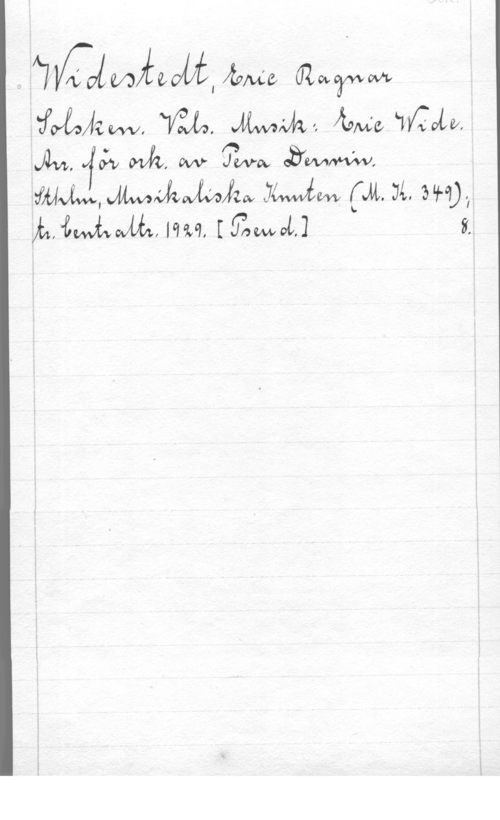 Widestedt, Eric Ragnar
Solsken. Vals. Musik: Eric Wide.
Arr. för ork. av Teva Derwin.
Sthlm, Musikaliska Knuten (M. K. 349);
tr. Centraltr. 1929. [Pseud.] 8.